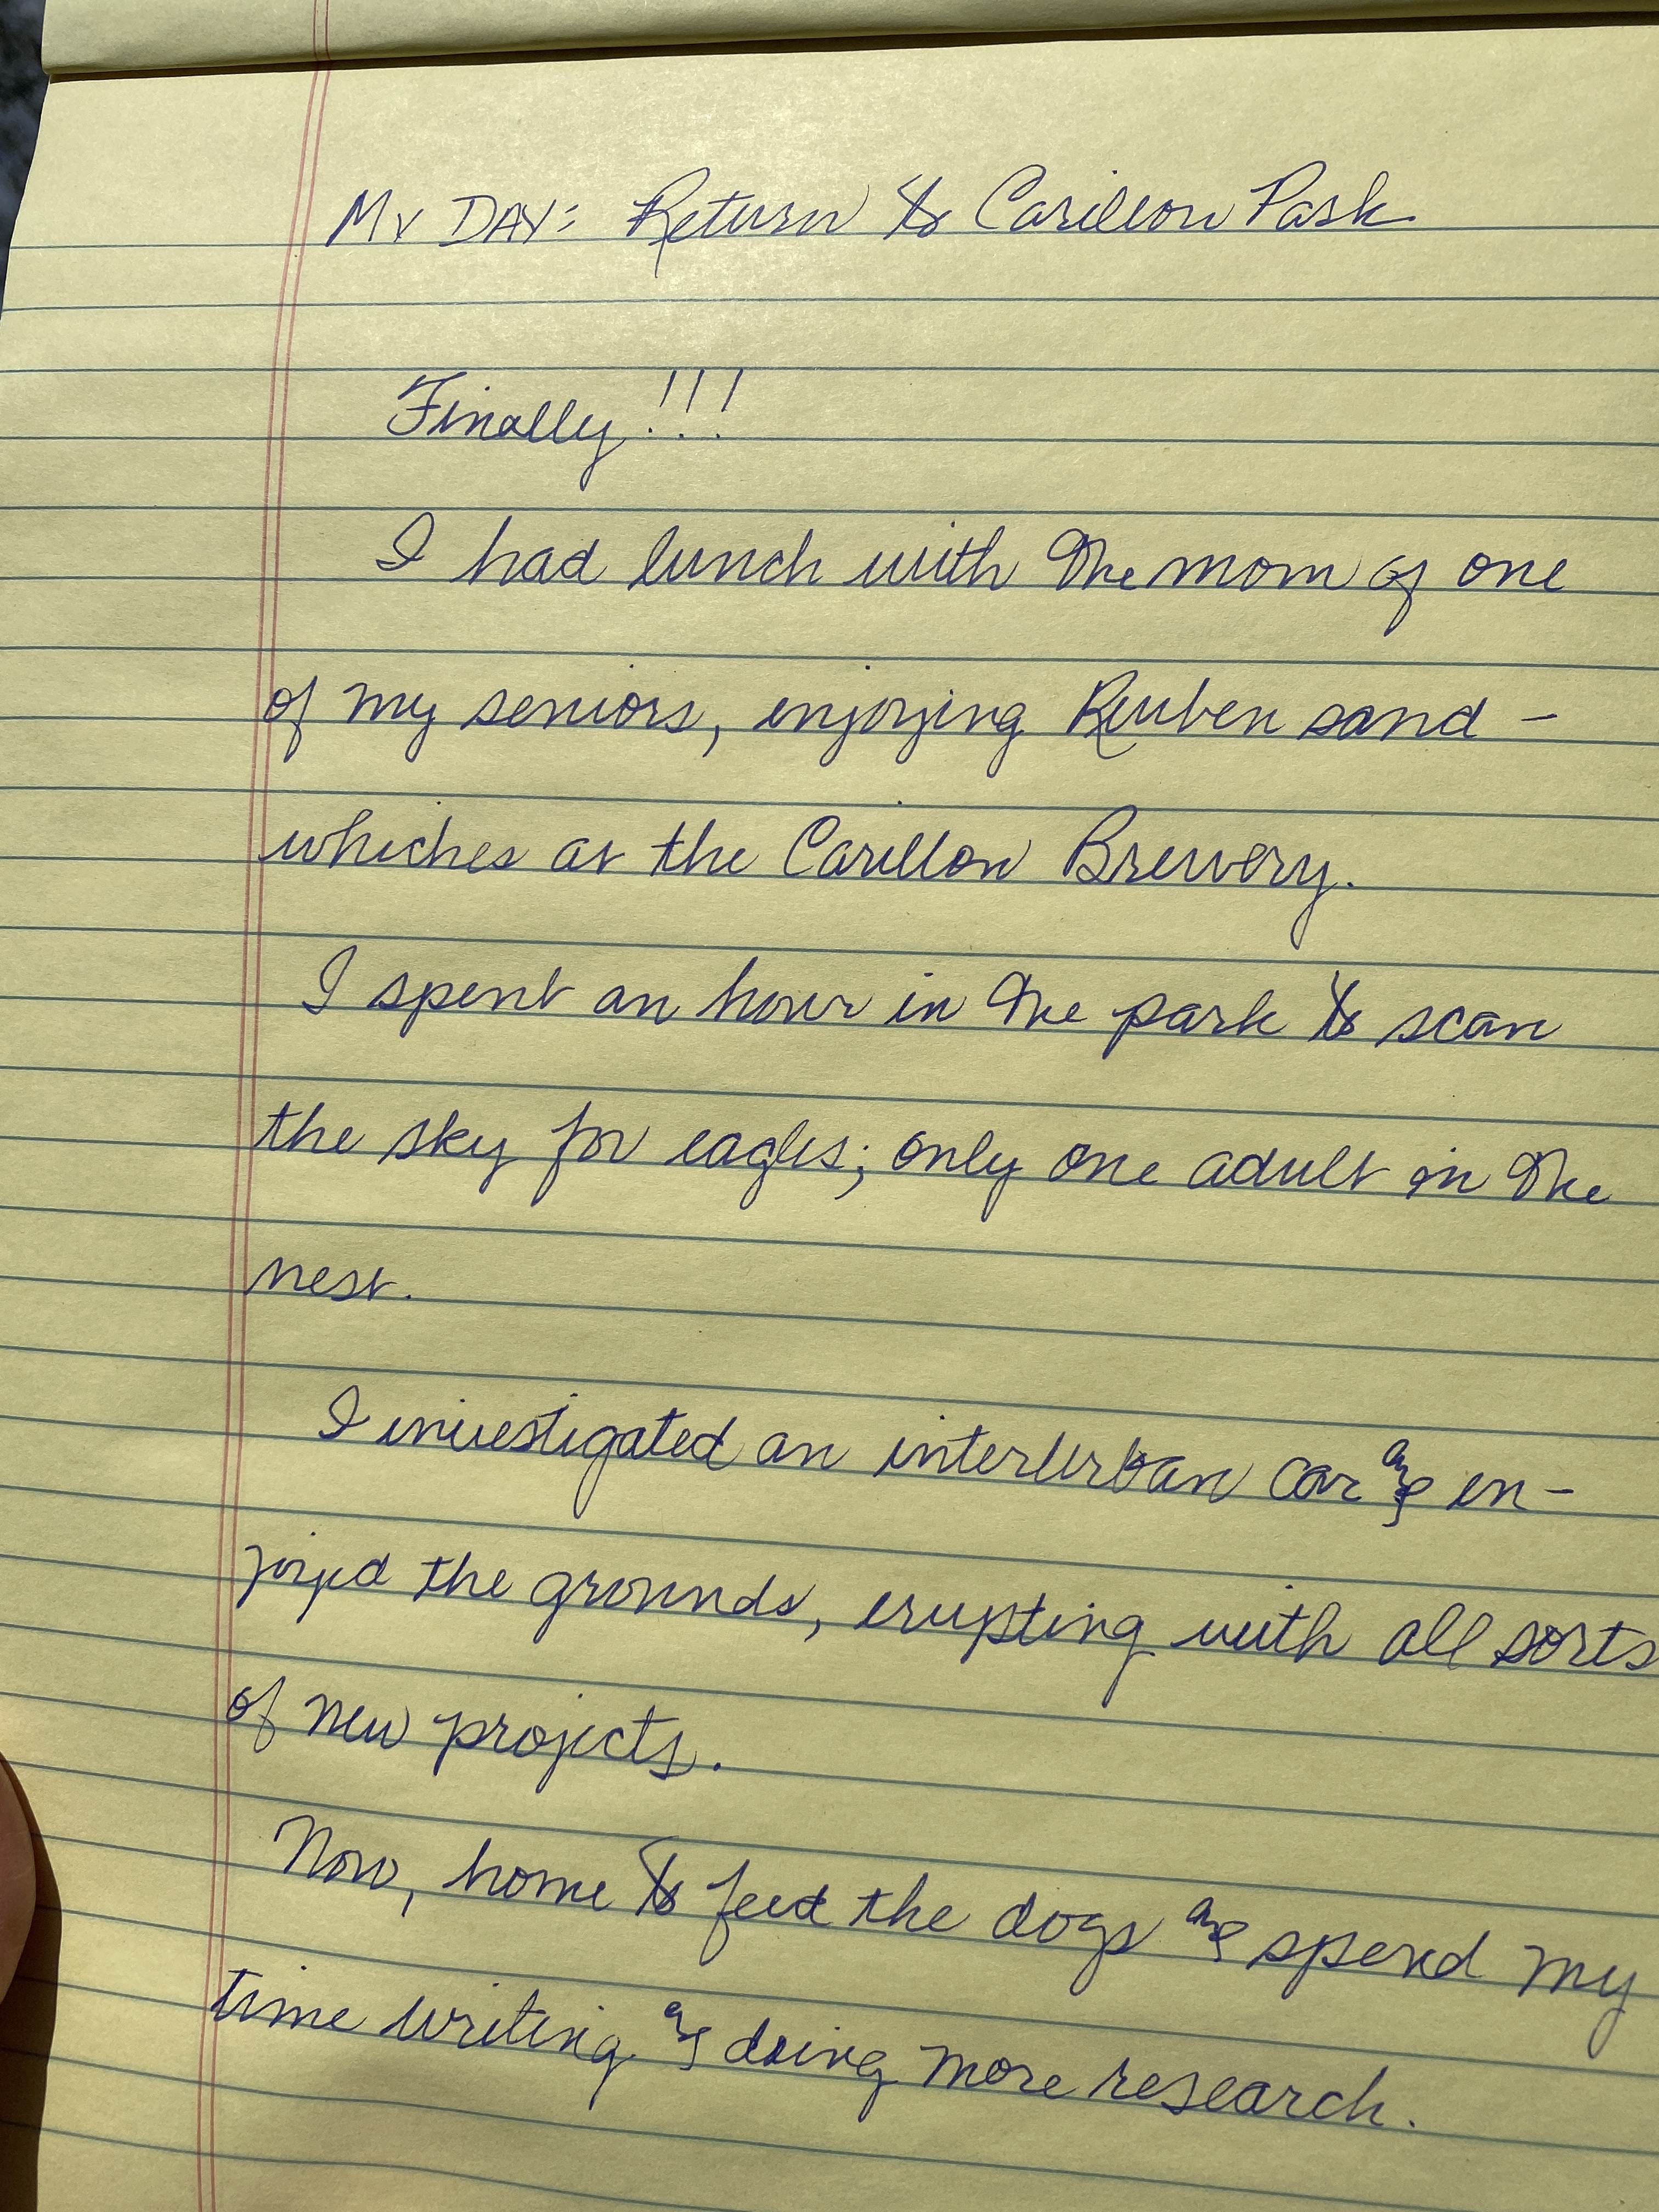 MY DAY: Return to Carillon Park
Finally!!!
I had lunch with the mom of one
of my seniors, enjoying Reuben sand-
whiches at the Carillon Brewery.
I spent an hour in the park to scan
the sky for eagles; only one adult in the
nest.
I investigated an interurban car and en-
joyed the grounds, erupting with all sorts
of new projects.
Now, home to feed the dogs and spend my
time writing and doing more research.